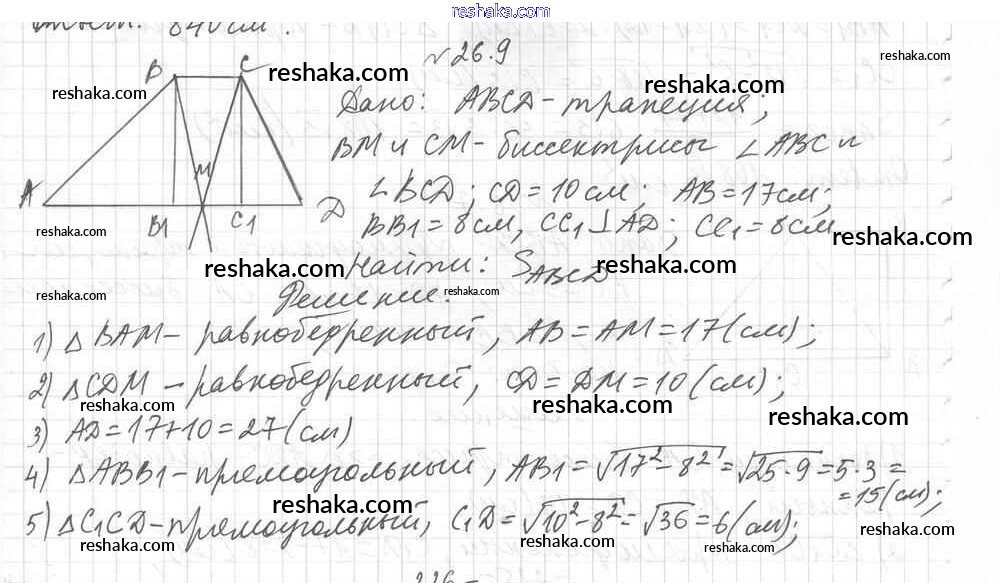 reshaka.com
840 см².
№26.9
B C reshaka.com reshaka.com
reshaka.com Дано: ABCD - трапеция;
BM и CM - биссектрисы ∠ABC и
M
A B1 C1 D ∠BCD; CD = 10 см; AB = 17 см;
reshaka.com BB1 = 8 см, CC1 ⊥ AD; CC1 = 8 см reshaka.com
reshaka.com Найти: S ABCD reshaka.com
reshaka.com Решение: reshaka.com
1) △BAM - равнобедренный, AB = AM = 17 (см);
2) △CDM - равнобедренный, CD = DM = 10 (см);
reshaka.com reshaka.com reshaka.com
3) AD = 17 + 10 = 27 (см)
4) △ABB1 - прямоугольный, AB1 = √17² - 8² = √25 · 9 = 5 · 3 =
reshaka.com = 15 (см);
5) △C1CD - прямоугольный, C1D = √10² - 8² = √36 = 6 (см);
reshaka.com reshaka.com reshaka.com